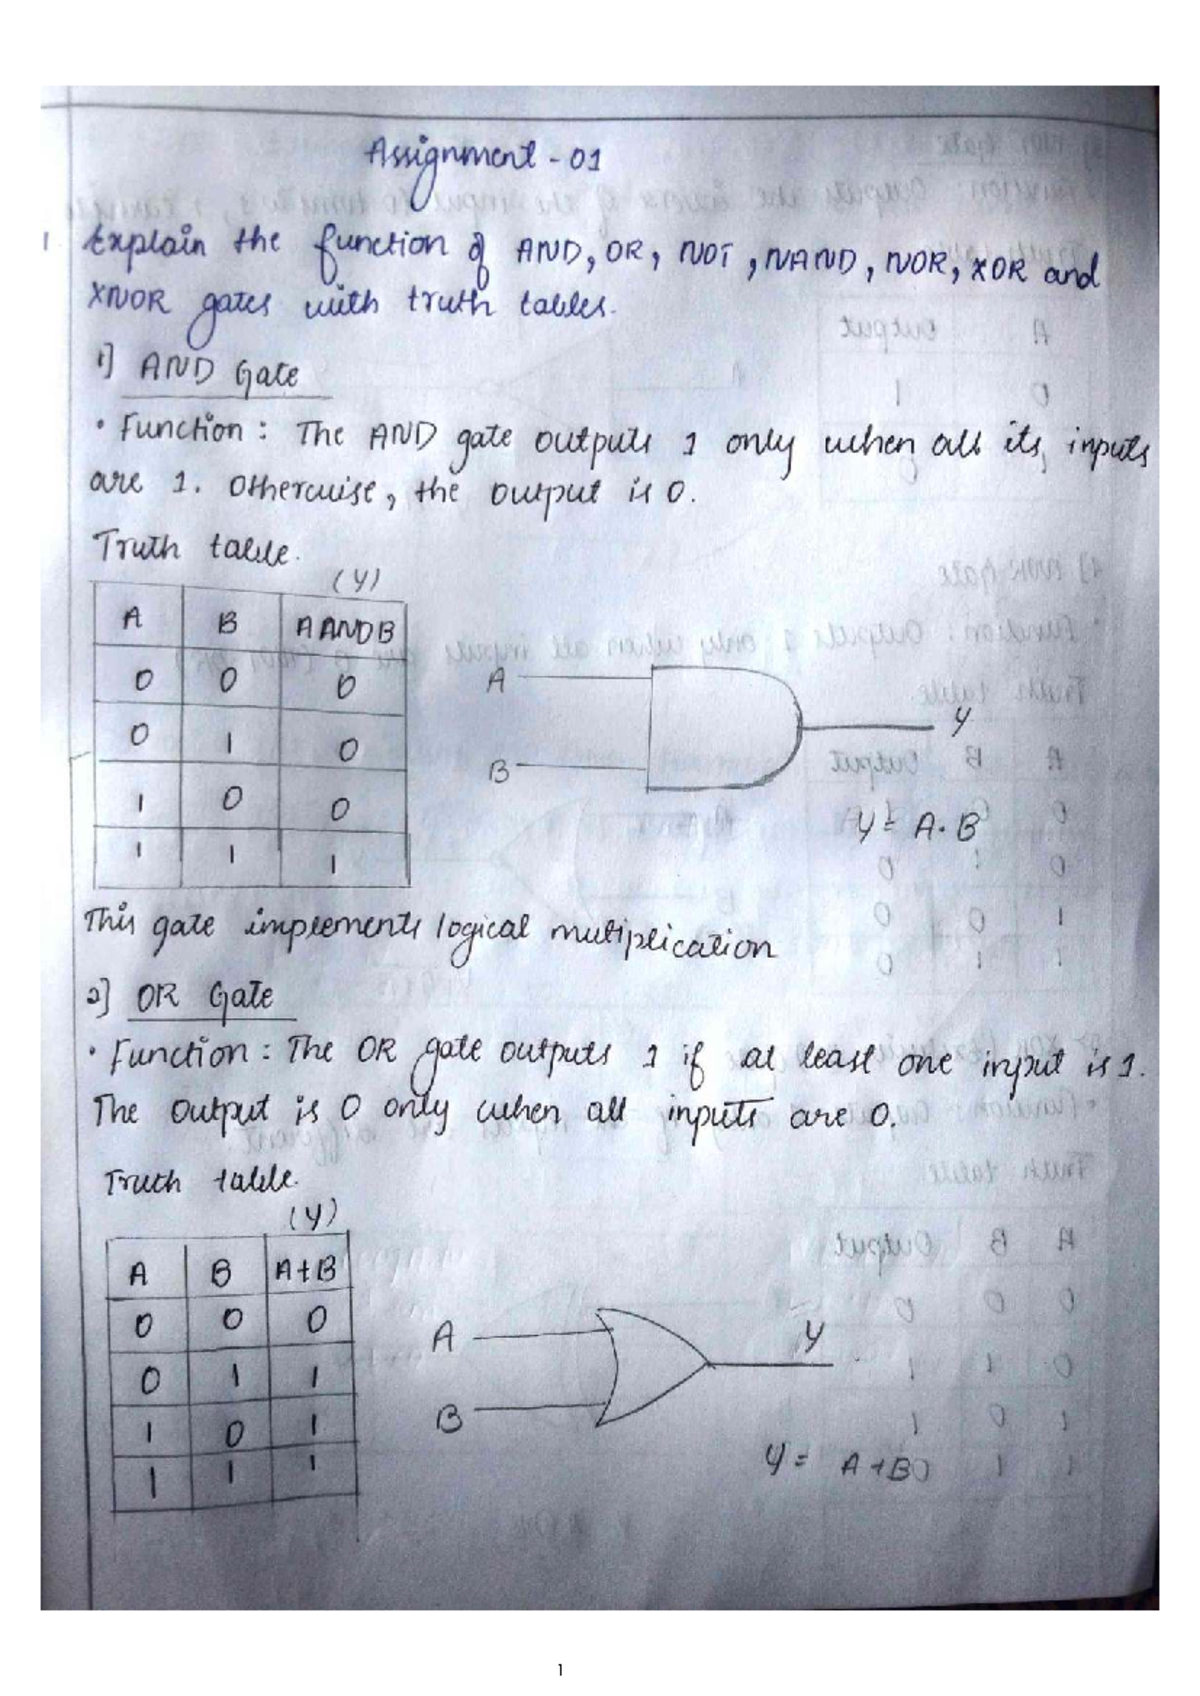 Assignment - 01
1 Explain the function of AND, OR, NOT, NAND, NOR, XOR and
XNOR gates with truth tables.
1] AND Gate
• Function: The AND gate outputs 1 only when all its inputs
are 1. Otherwise, the output is 0.
Truth table.
(Y)
A B A AND B
0 0 0
0 1 0
1 0 0
1 1 1
A
B
Y
Y = A · B
This gate implements logical multiplication
2] OR Gate
• Function: The OR gate outputs 1 if at least one input is 1.
The output is 0 only when all inputs are 0.
Truth table.
(Y)
A B A+B
0 0 0
0 1 1
1 0 1
1 1 1
A
B
Y
Y = A+B
1